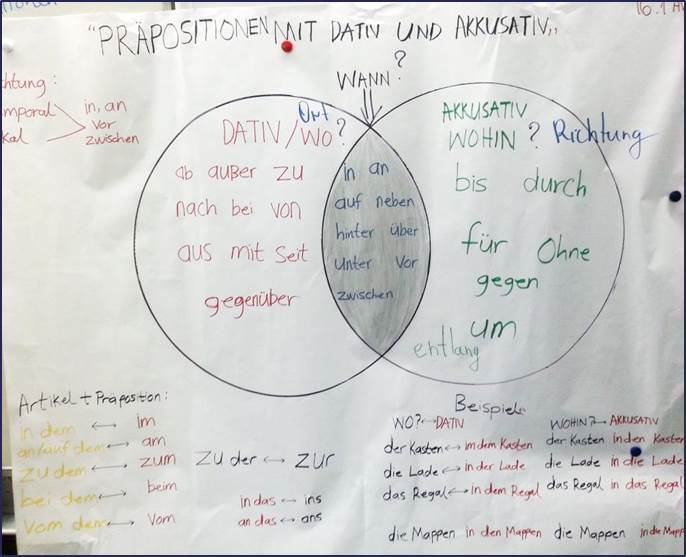 "PRÄPOSITIONEN MIT DATIV UND AKKUSATIV"
16.1
WANN?
temporal
in, an
vor
zwischen
DATIV / WO?
Ort
AKKUSATIV
WOHIN? Richtung
ab außer zu
nach bei von
aus mit seit
gegenüber
in an
auf neben
hinter über
unter vor
zwischen
bis durch
für ohne
gegen
um
entlang
Artikel + Präposition:
in dem ↔ im
an/auf dem ↔ am
zu dem ↔ zum
bei dem ↔ beim
vom dem ↔ vom
zu der ↔ zur
in das ↔ ins
an das ↔ ans
Beispiele
WO? ↔ DATIV
der Kasten ↔ in dem Kasten
die Lade ↔ in der Lade
das Regal ↔ in dem Regal
die Mappen in den Mappen
WOHIN? ↔ AKKUSATIV
der Kasten in den Kasten
die Lade in die Lade
das Regal in das Regal
die Mappen in die Mapp